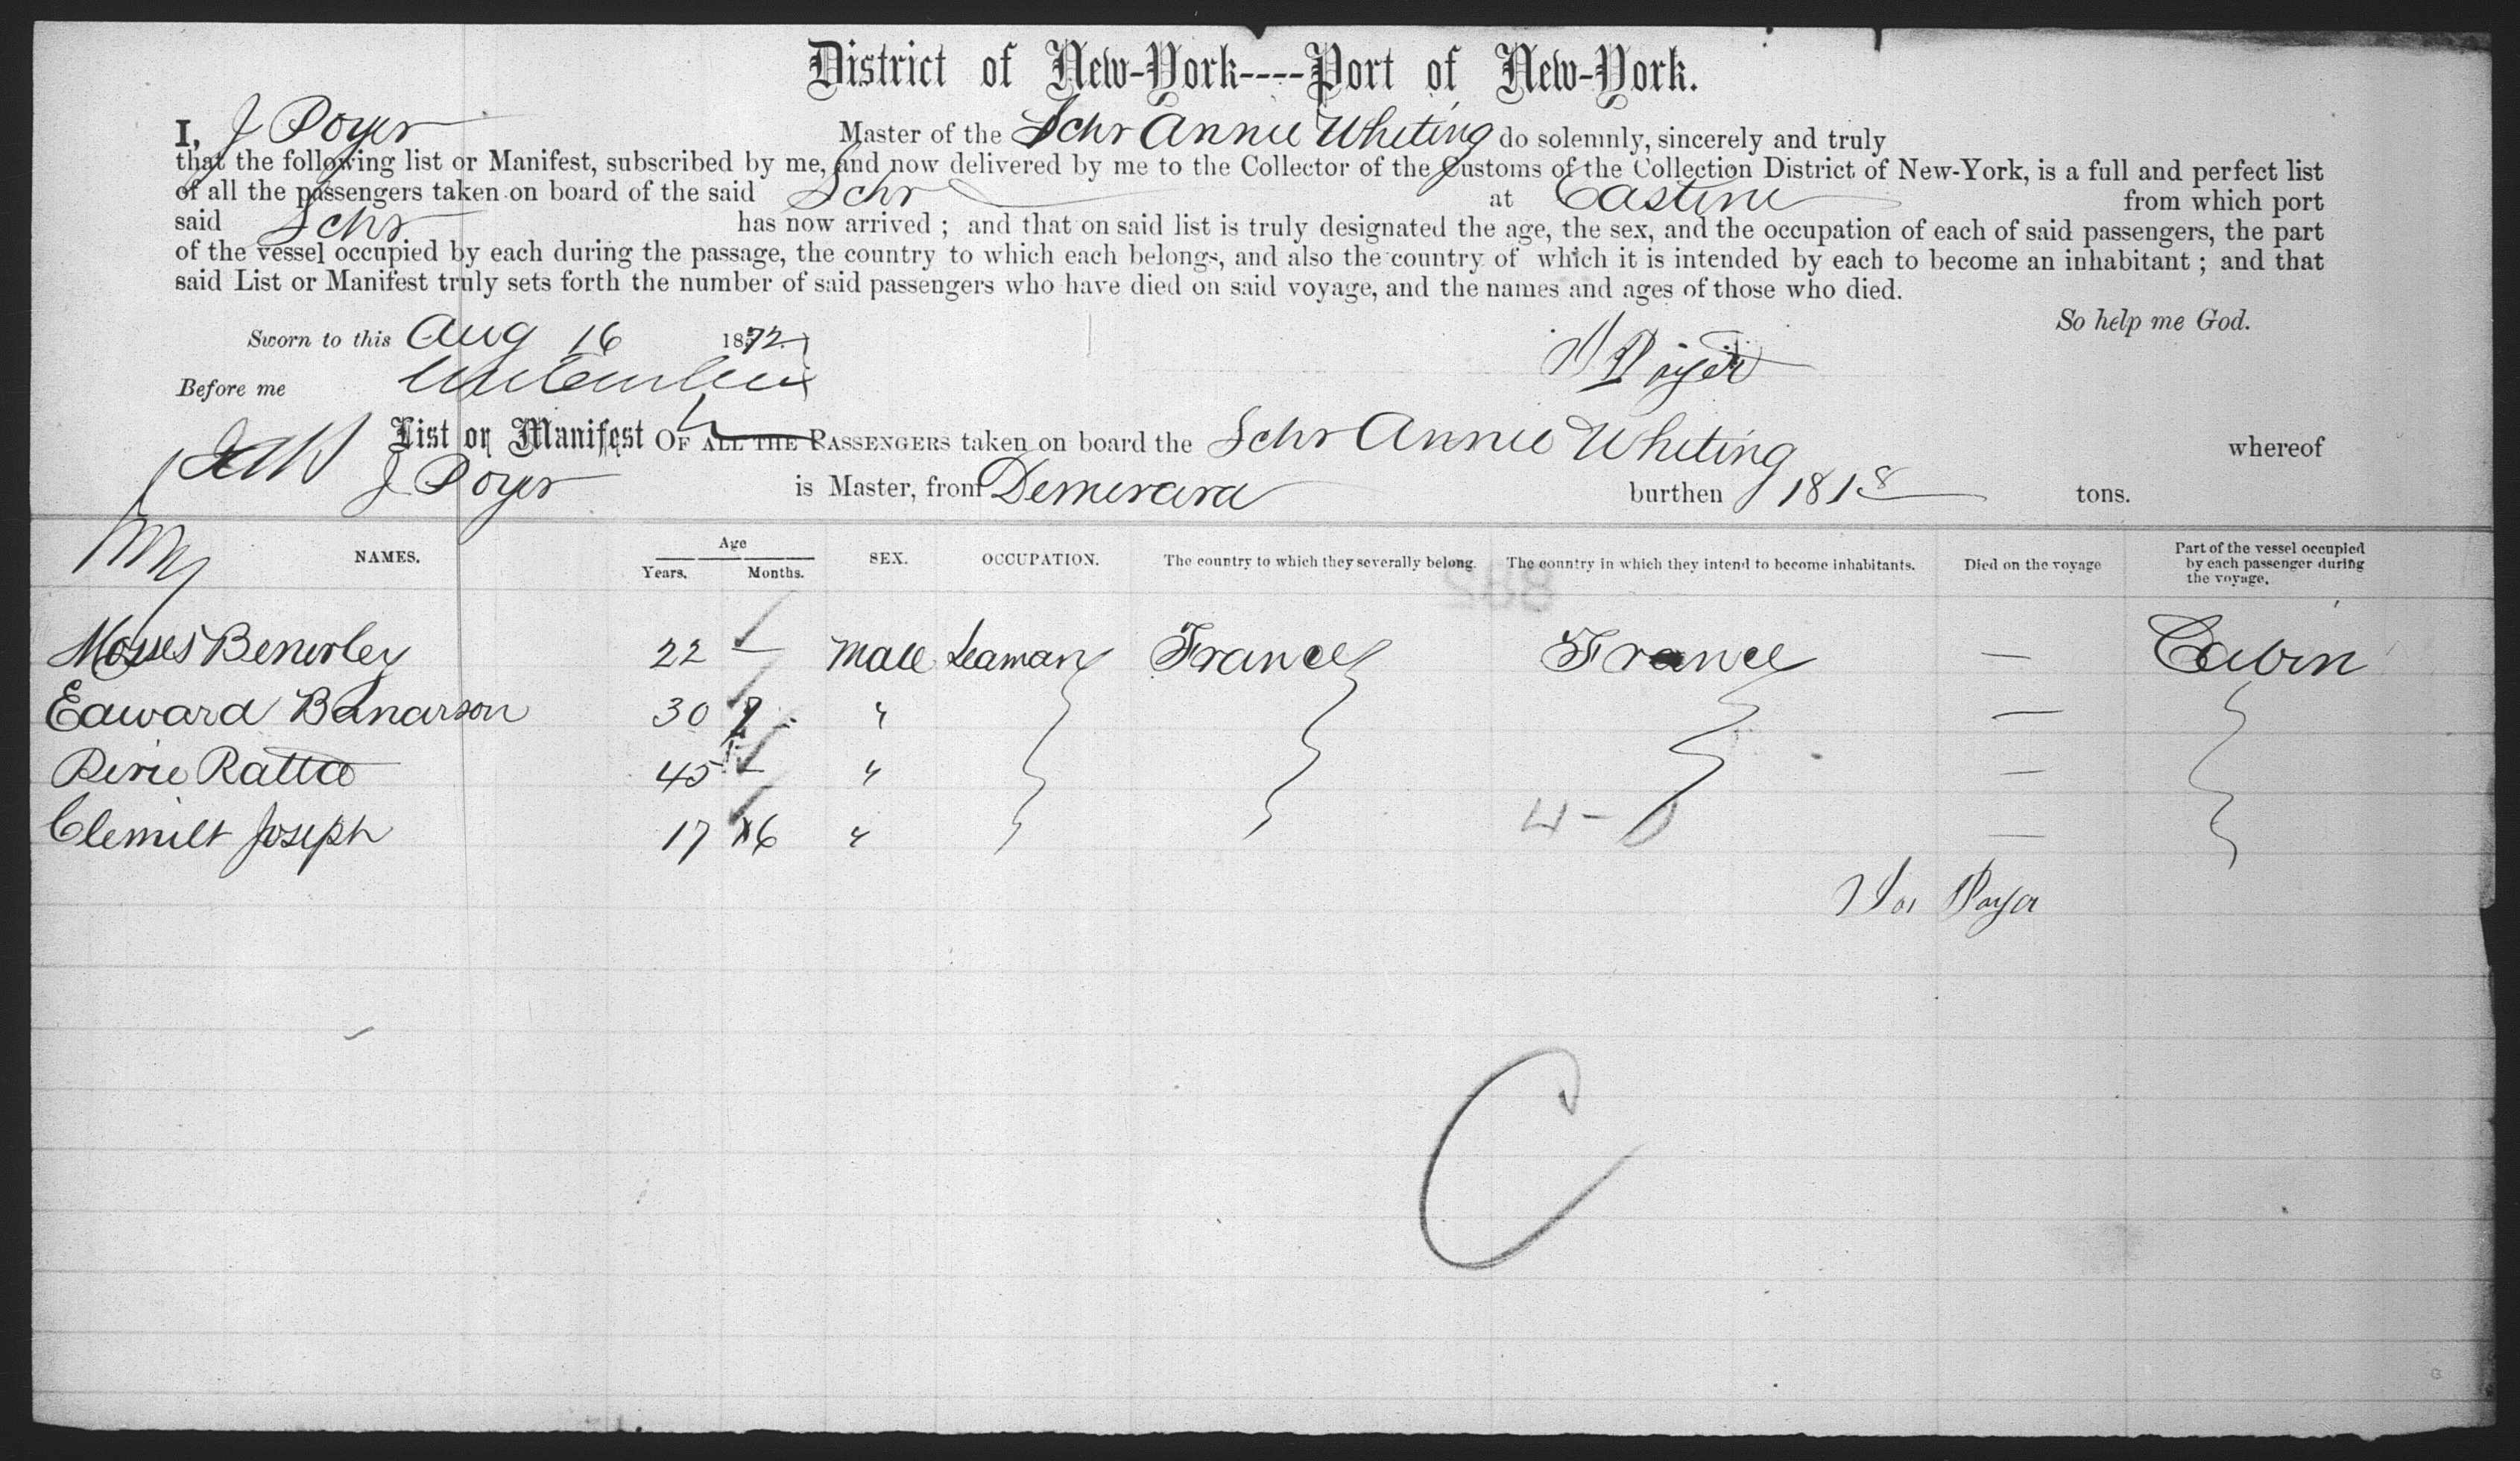 District of New-York----Port of New-York.
I, J Poyer Master of the Schr Annie Whiting do solemnly, sincerely and truly
that the following list or Manifest, subscribed by me, and now delivered by me to the Collector of the Customs of the Collection District of New-York, is a full and perfect list
of all the passengers taken on board of the said Schr at Castine from which port
said Schr has now arrived ; and that on said list is truly designated the age, the sex, and the occupation of each of said passengers, the part
of the vessel occupied by each during the passage, the country to which each belongs, and also the country of which it is intended by each to become an inhabitant ; and that
said List or Manifest truly sets forth the number of said passengers who have died on said voyage, and the names and ages of those who died.
So help me God.
Sworn to this Aug 16 1872
Before me
List or Manifest OF ALL THE PASSENGERS taken on board the Schr Annie Whiting whereof
J Poyer is Master, from Demerara burthen 181 8 tons.
NAMES. Age Years. Months. SEX. OCCUPATION. The country to which they severally belong. The country in which they intend to become inhabitants. Died on the voyage Part of the vessel occupied by each passenger during the voyage.
Moses Benerley 22 — Male Seaman France France — Cabin
Edward Banarson 30 " —
Pirie Ratta 45 — " —
Clemilt Joseph 17 6 " —
Poyer
C